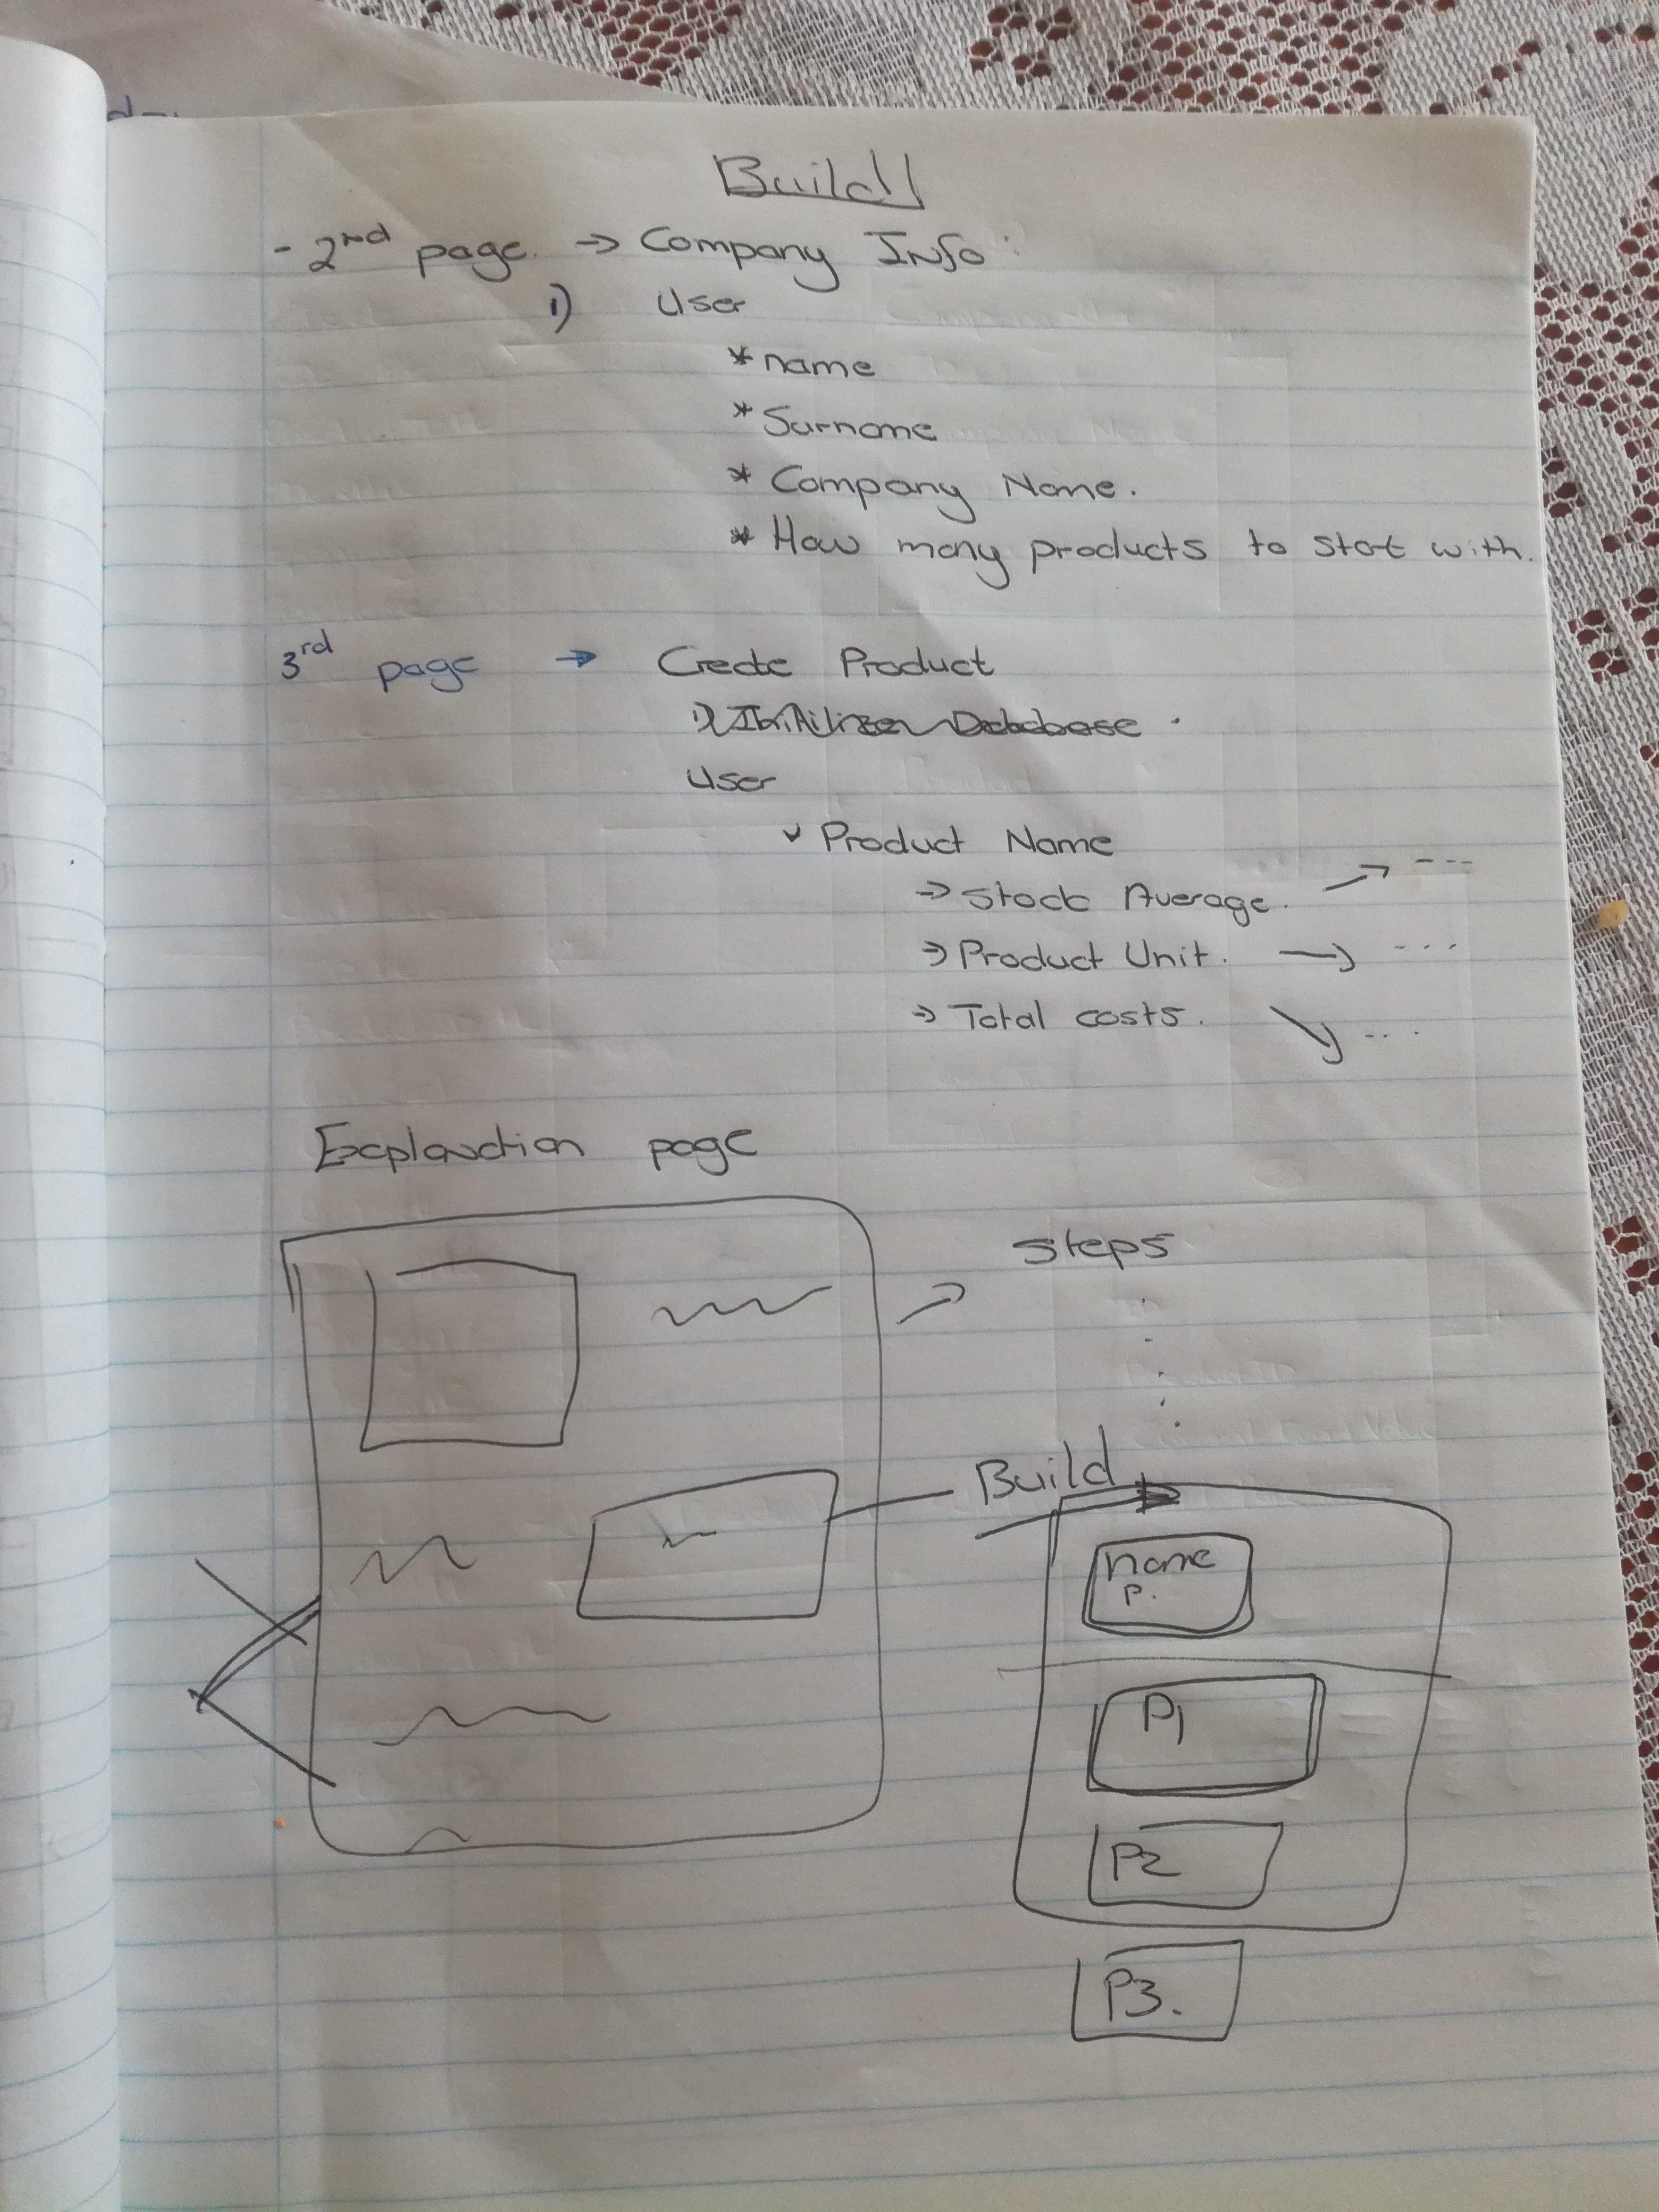 Build
- 2nd page. → Company Info:
1) User
* name
* Surname
* Company Name.
* How many products to start with.
3rd page → Create Product
User
✓ Product Name
→ Stock Average. → ---
→ Product Unit. → ---
→ Total costs. → ...
Explanation page
Steps
Build
name
P.
P1
P2
P3.